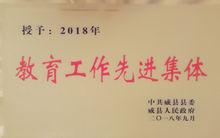 授予：2018年
教育工作先进集体
中共威县县委
威县人民政府
二〇一八年九月